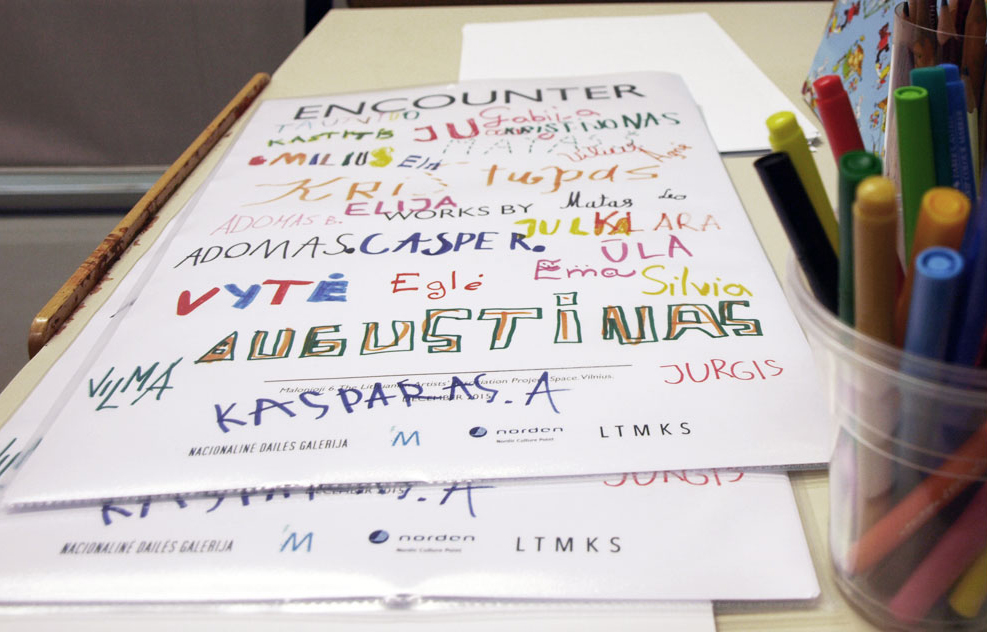 ENCOUNTER
Gabija
KASTYTIS JU KRISTIJONAS
EMILIUS EJA
KRIS tupas
ELIJA Matas Leo
ADOMAS B. WORKS BY JULKA KLARA
ADOMAS. CASPER. ULA
VYTĖ Eglė Ema Silvia
AUGUSTINAS
VILMA JURGIS
Malonioji 6. The Lithuanian Artists' Association Project Space. Vilnius.
DECEMBER 2015
KASPARAS. A
NACIONALINĖ DAILĖS GALERIJA M norden LTMKS
Nordic Culture Point
KASPARAS. A JURGIS
DECEMBER 2015
NACIONALINĖ DAILĖS GALERIJA M norden LTMKS
Nordic Culture Point